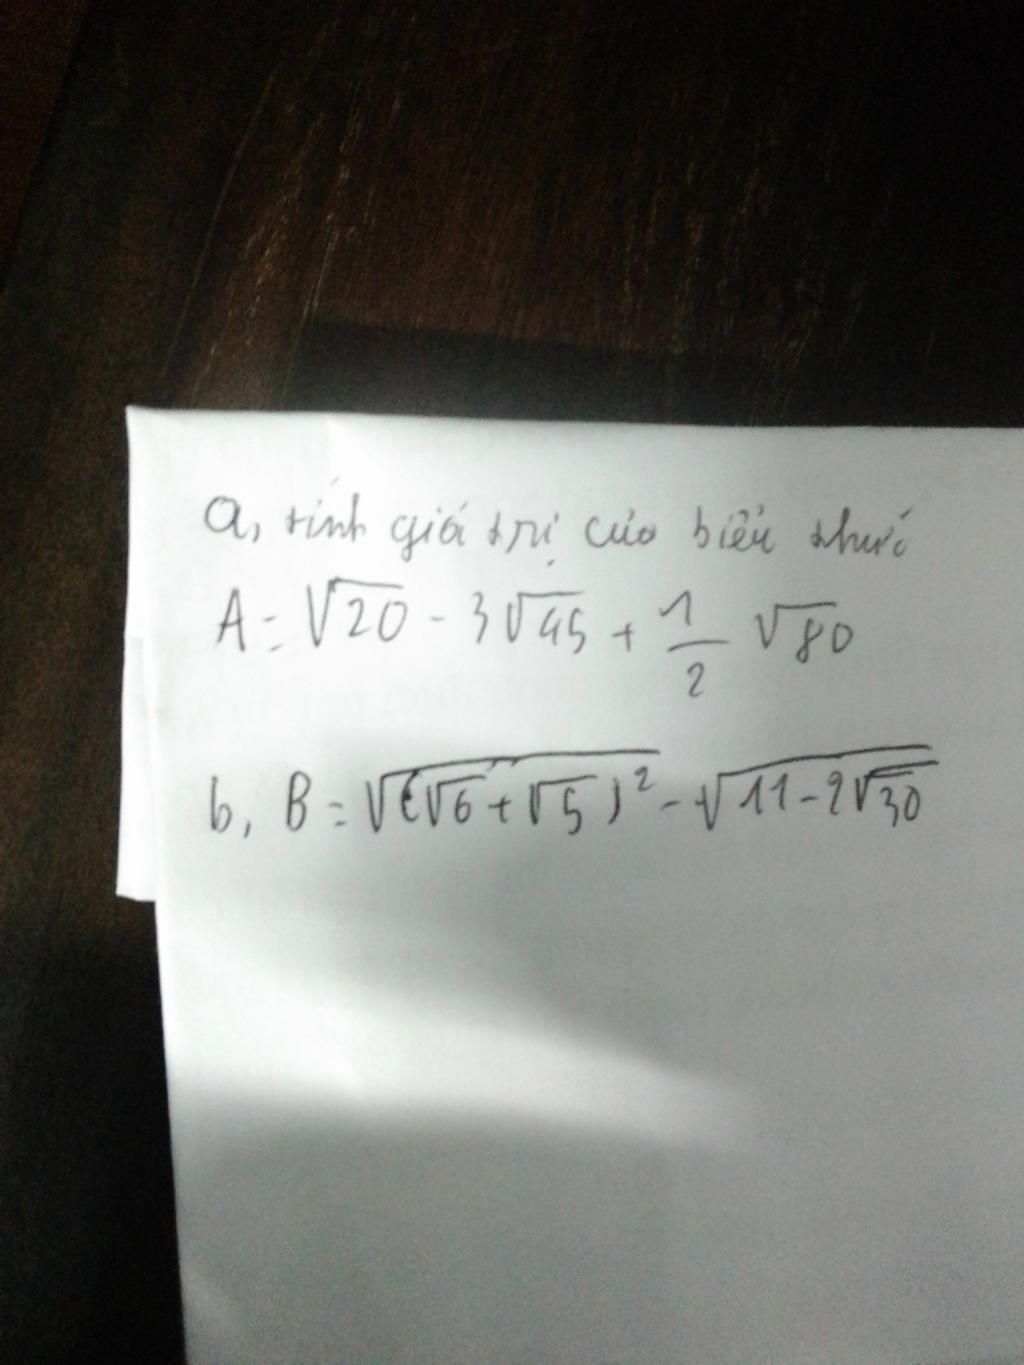 a, tính giá trị của biểu thức
A = √20 - 3√45 + 1/2 √80
b, B = √((√6 + √5)² - √(11 - 2√30)